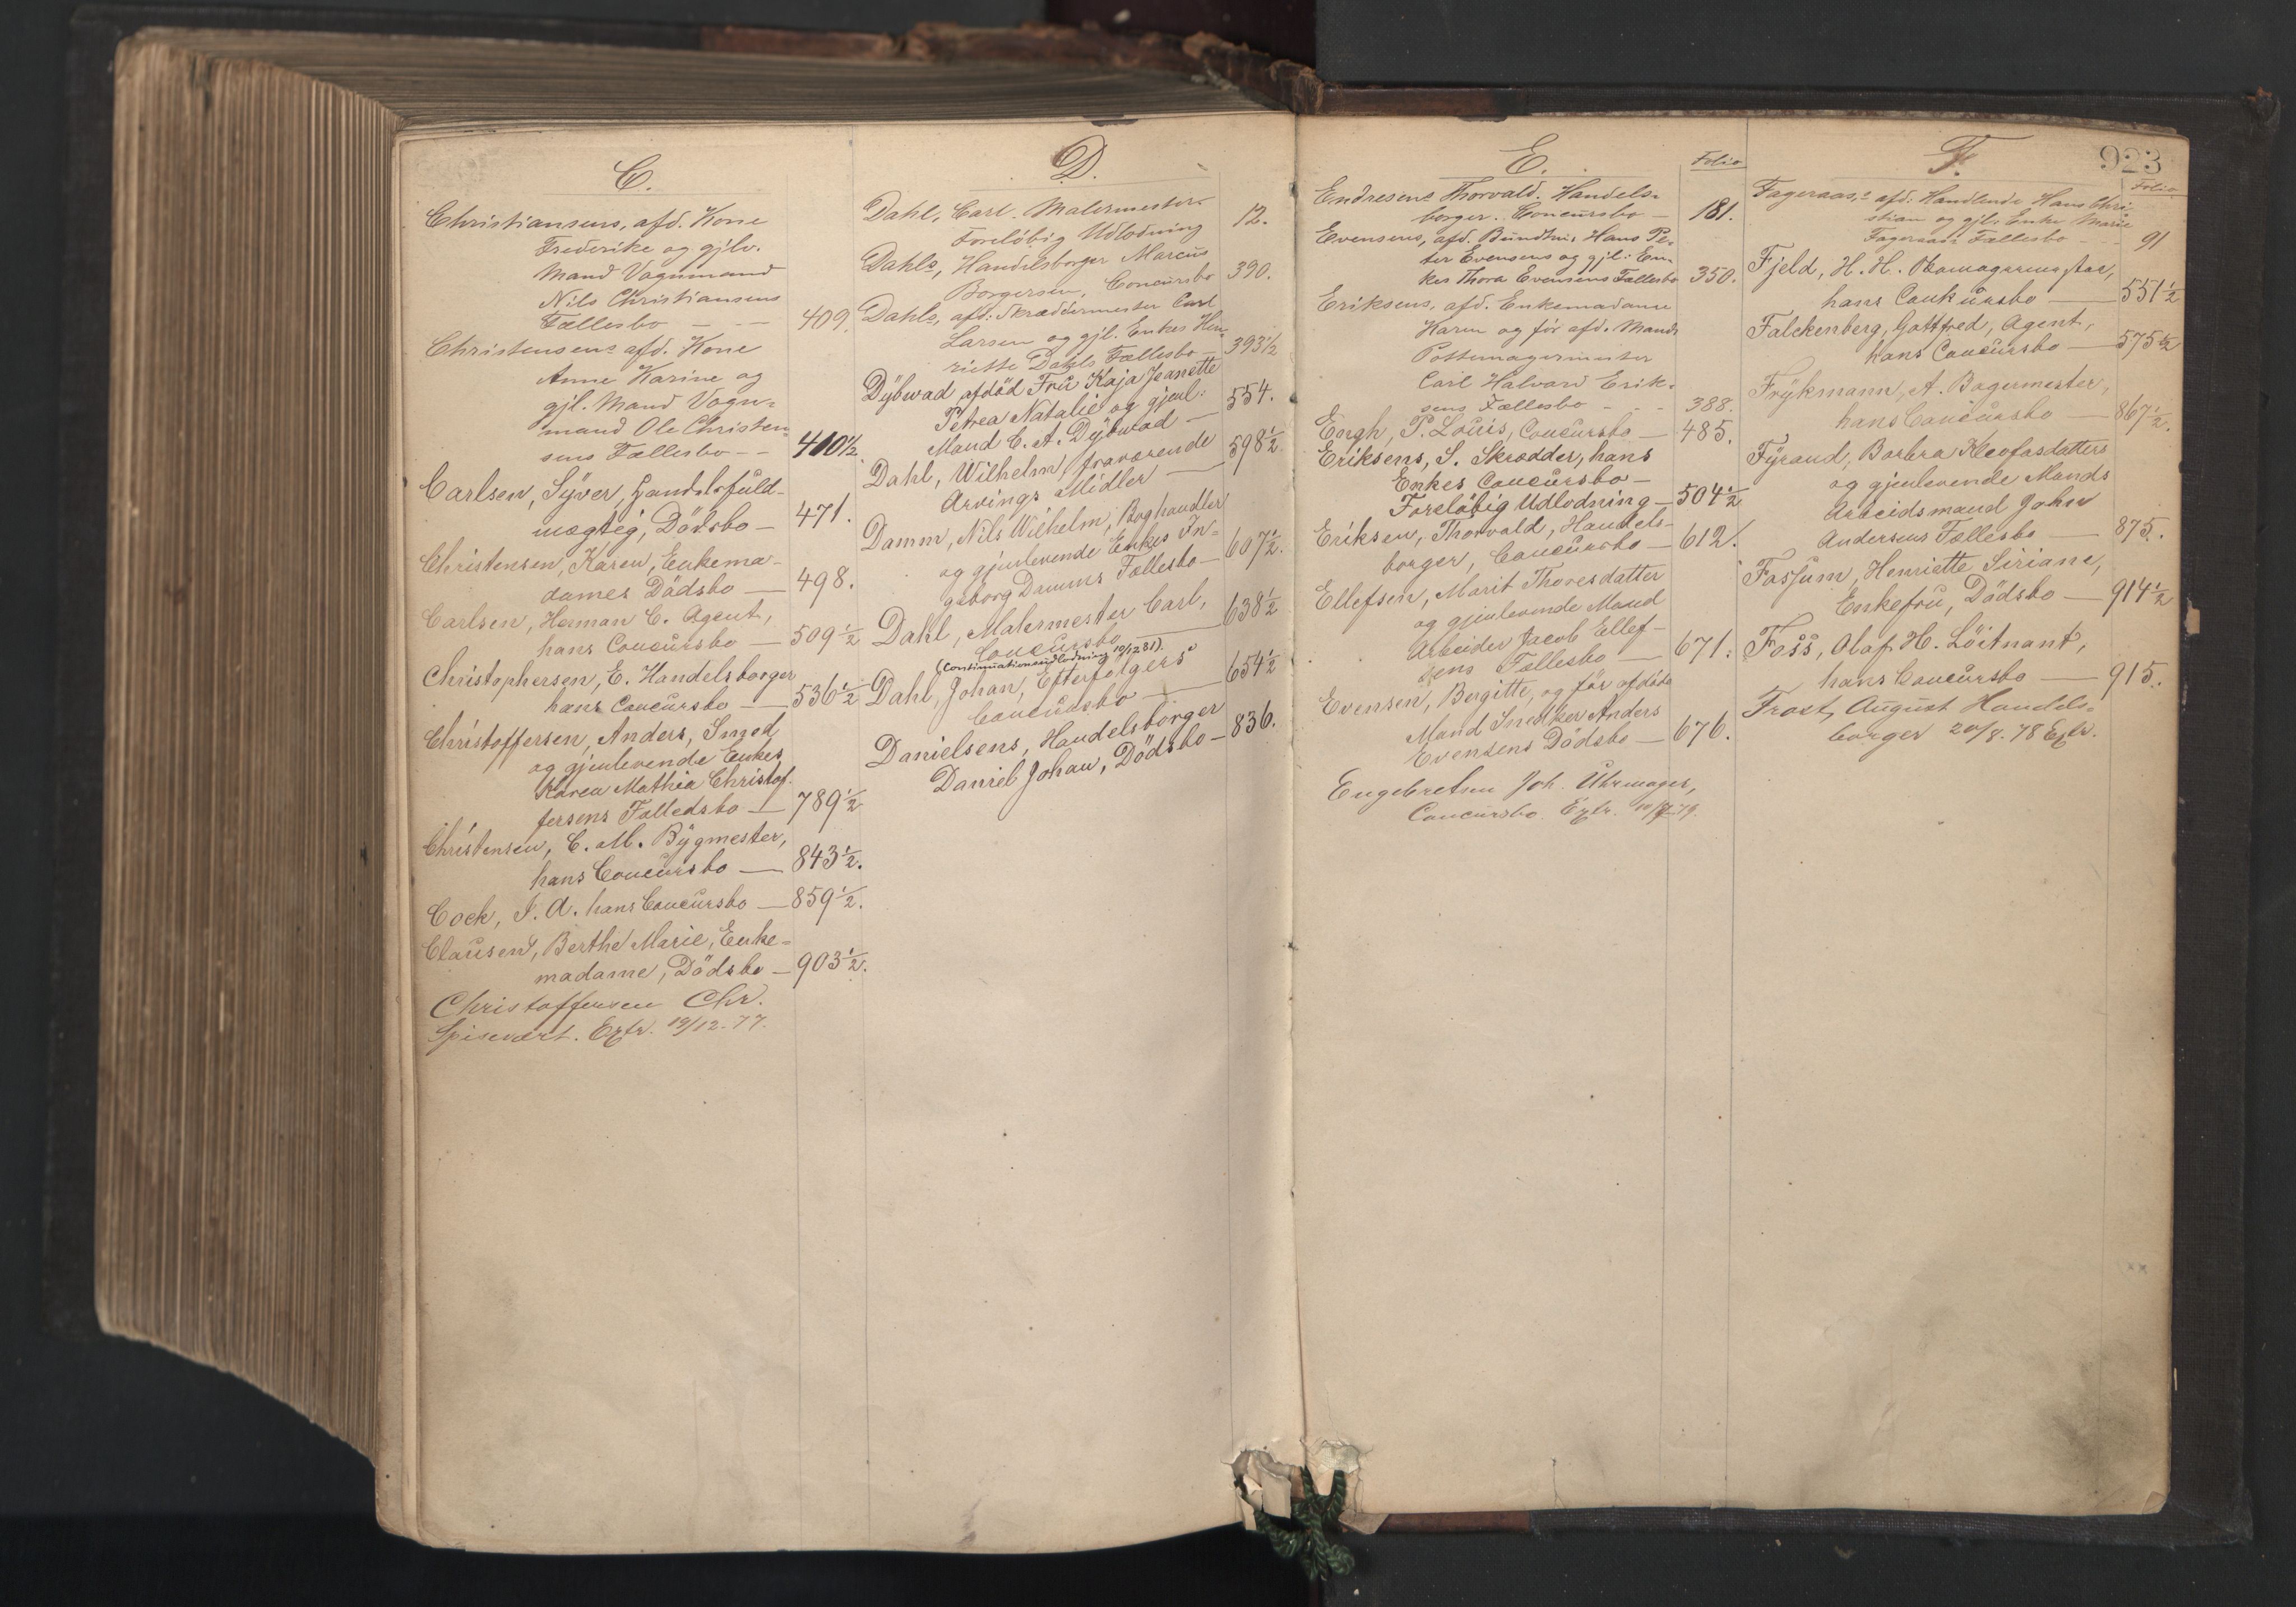 C.
Christiansens, afd. Kone
Frederike og gjlv.
Mand Vognmand
Nils Christiansens
Fællesbo — — — 409.
Christensens afd. Kone
Anne Karine og
gjl. Mand Vogn-
mand Ole Christen-
sens Fællesbo — — 410½
Carlsen, Syver, Handelsfuld-
mægtig, Dödsbo — 471.
Christensen, Karen, Enkema-
dames Dödsbo — 498.
Carlsen, Herman C. Agent,
hans Concursbo — 509½
Christophersen, E. Handelsborger
hans Concursbo — 536½
Christoffersen, Anders, Smed
og gjenlevende Enkes
Karen Mathea Christof-
fersens Fælledsbo — 789½
Christensen, C. M. Bygmester,
hans Concursbo — 843½.
Cock, I. A. hans Concursbo — 859½.
Clausen, Berthe Marie, Enke-
madame, Dödsbo — 903½.
Christoffersen Chr.
Spisevært. Extr. 19/12-77.
D.
Dahl, Carl. Malermester.
Foreløbig Udlodning 12.
Dahls, Handelsborger Marcus
Borgersen, Concursbo 390.
Dahls, afd: Skræddermester Carl
Larsen og gjl. Enkes Hen-
riette Dahls Fællesbo — 393½
Dybwad afdöd Fru Kaja Jeanette
Petrea Natalie og gjenl:
Mand C. A. Dybwad — 554.
Dahl, Wilhelm, fraværende
Arvings Midler — 598½
Damm, Nils Wilhelm, Boghandler
og gjenlevende Enkes In-
geborg Damms Fællesbo — 607½.
Dahl, Malermester Carl,
Concursbo — 638½
(Continuationsudlodning 10/12 81).
Dahl, Johan, Efterfölgers
Concursbo — 654½
Danielsens, Handelsborger
Daniel Johan, Dödsbo — 836.
E.
Folio
Endresens Thorvald. Handels-
borger. Concursbo — 181.
Evensens, afd. Bundtm. Hans Pe-
ter Evensens og gjl: En-
kes Thora Evensens Fællesbo 350.
Eriksens, afd. Enkemadame
Karen og før afd. Mands
Pottemagermester
Carl Halvard Erik-
sens Fællesbo — — — 388.
Engh, P. Louis, Concursbo — 485.
Eriksens, S. Skrædder, hans
Enkes Concursbo —
Foreløbig Udlodning — 504½
Eriksen, Thorvald, Handels-
borger, Concursbo — 612.
Ellefsen, Marit Thoresdatter
og gjenlevende Mand
Arbeider Jacob Ellef-
sens Fællesbo — 671.
Evensen, Bergitte, og før afdøde
Mand Snedker Anders
Evensens Dödsbo — 676.
Engebretsen Joh. Uhrmager,
Concursbo Extr.
F.
923
Folio
Fageraas,s afd: Handlende Hans Chri-
stian og gjl: Enke Marie
Fageraas Fællesbo — — 91
Fjeld, H. H.
hans Conkursbo — 551½
Falckenberg, Gottfred, Agent,
hans Concursbo — 575½
Frykmann, A. Bagermester,
hans Concursbo — 867½.
Fyrand, Barbra Kleofasdatters
og gjenlevende Mands
Arbeidsmand John
Andersens Fællesbo — 875.
Fossum, Henriette Siriane,
Enkefru, Dödsbo — 914½
Foss, Olaf H. Löitnant,
hans Concursbo — 915.
Frost, August Handels-
borger 20/8. 78 Extr.